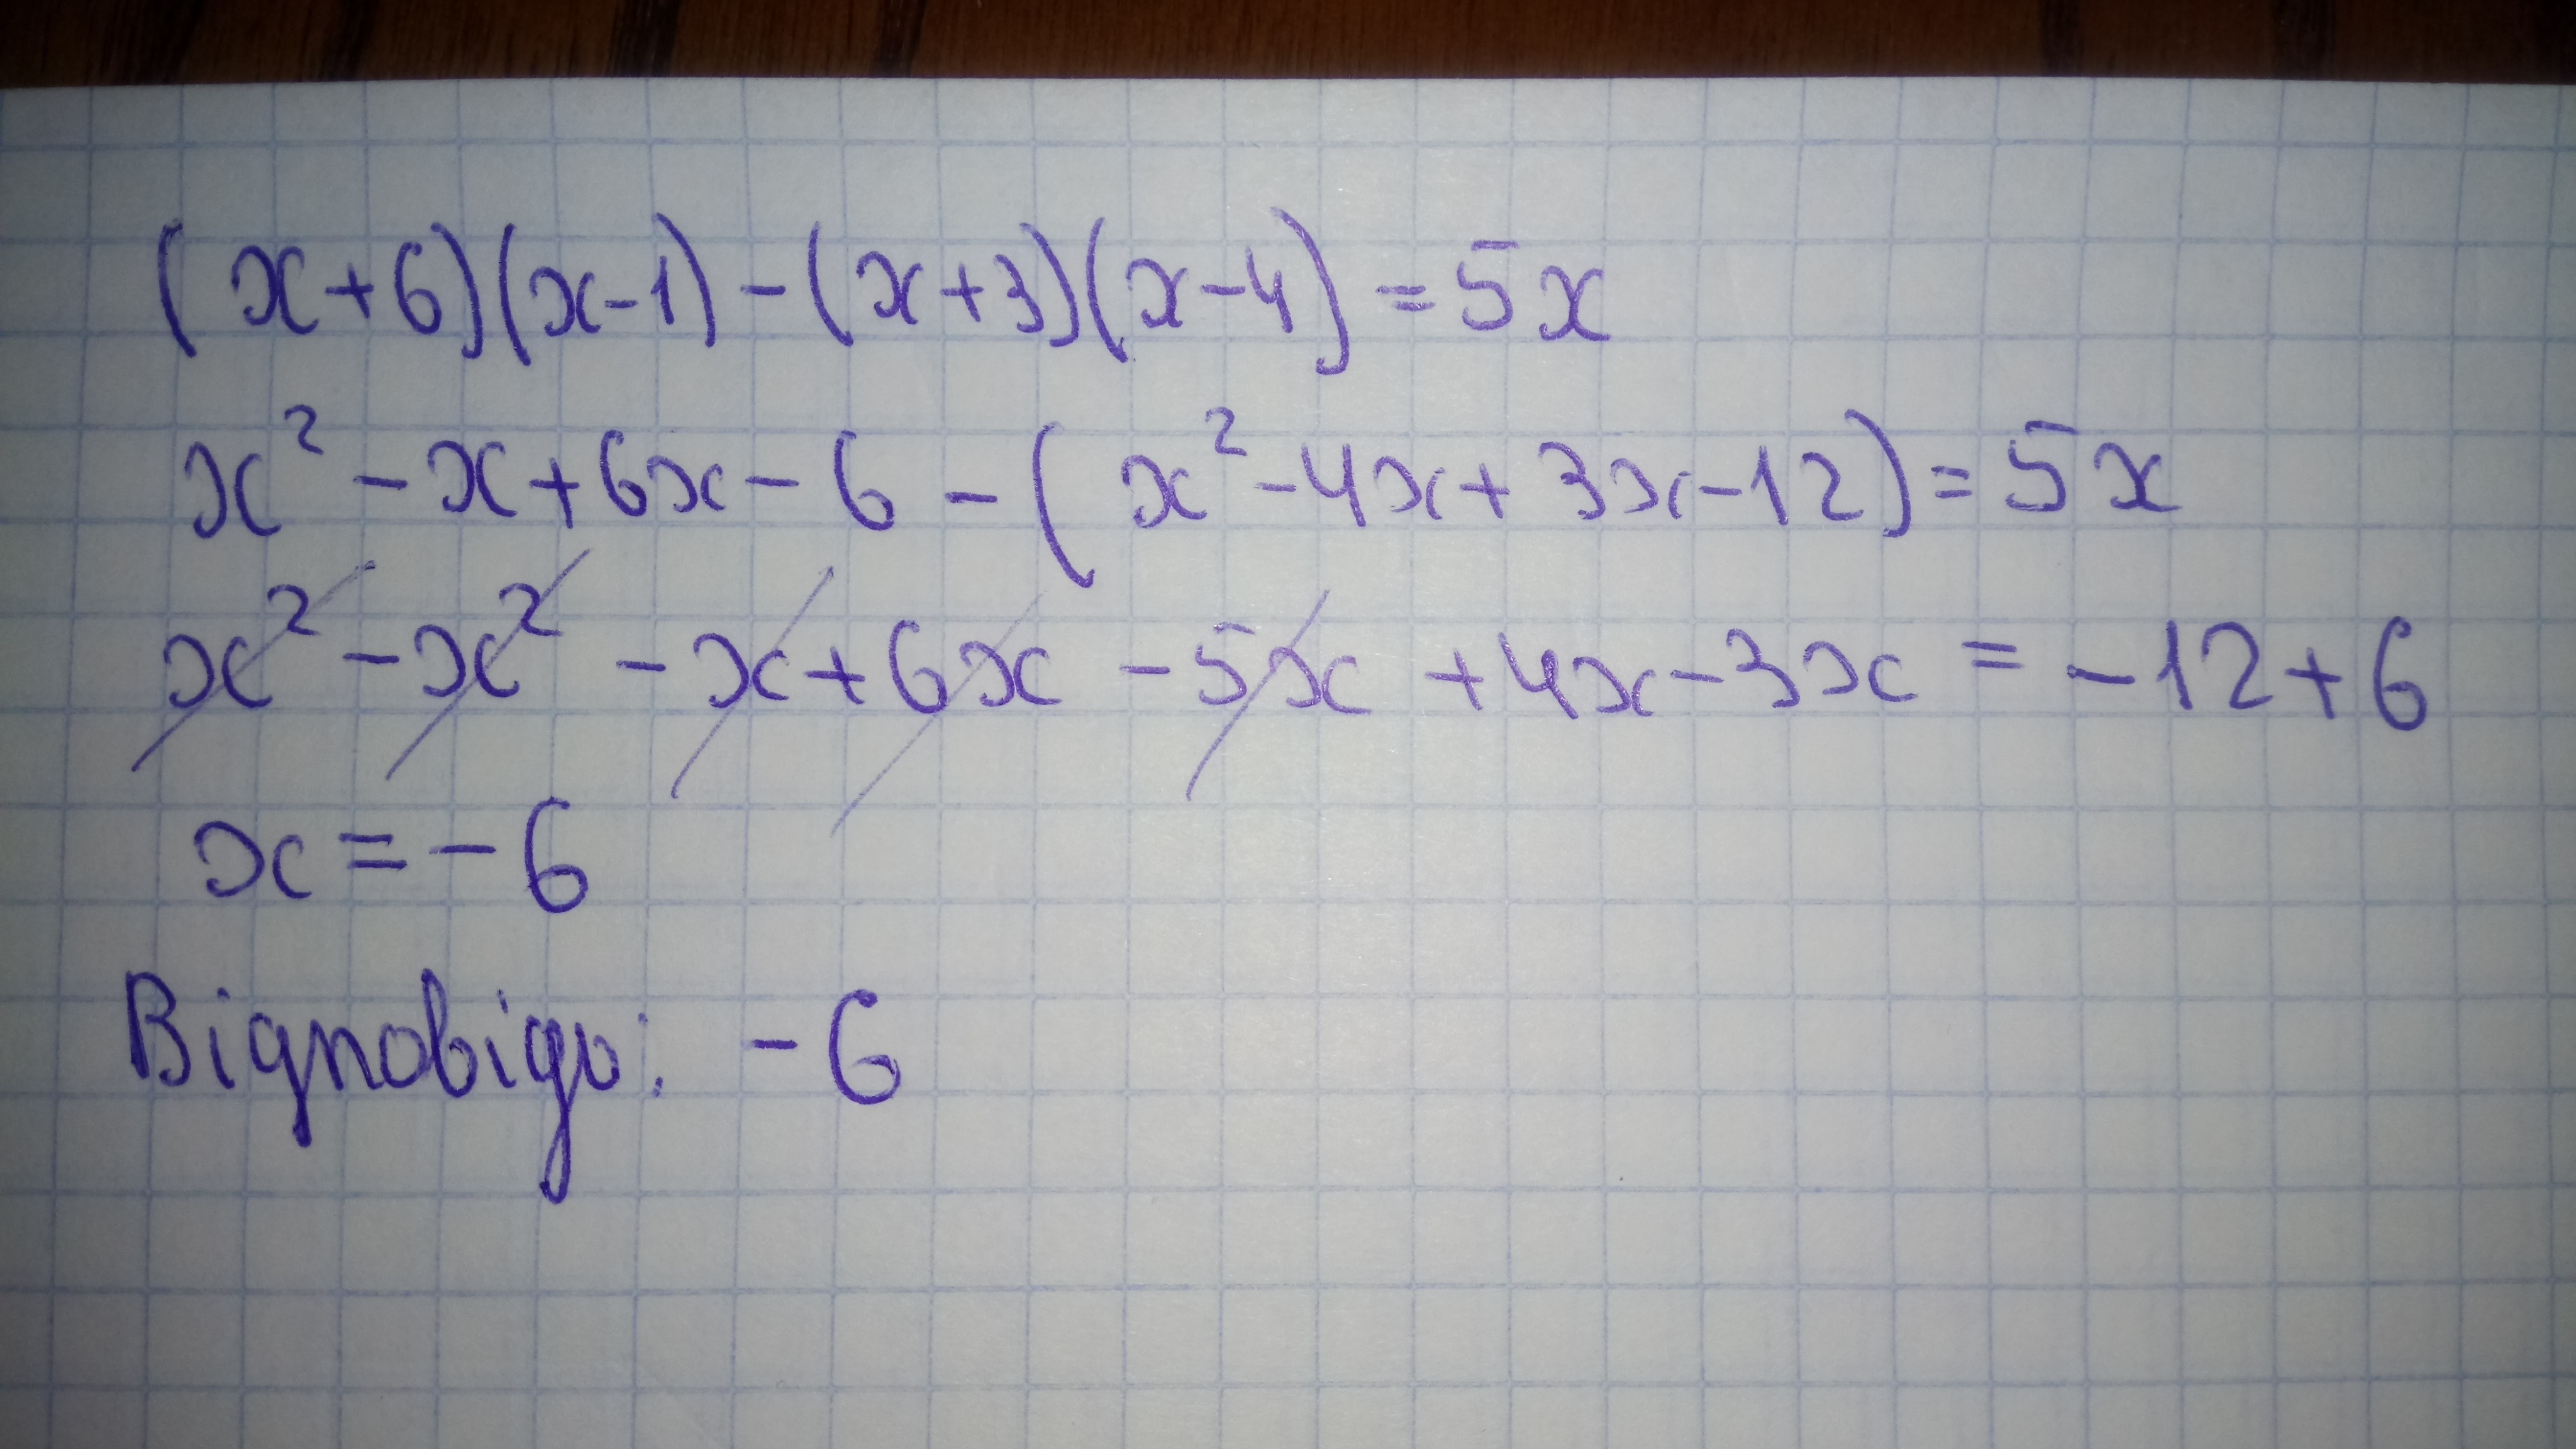 (x+6)(x-1)-(x+3)(x-4)=5x
x²-x+6x-6-(x²-4x+3x-12)=5x
x²-x²-x+6x-5x+4x-3x=-12+6
x=-6
Відповідь: -6